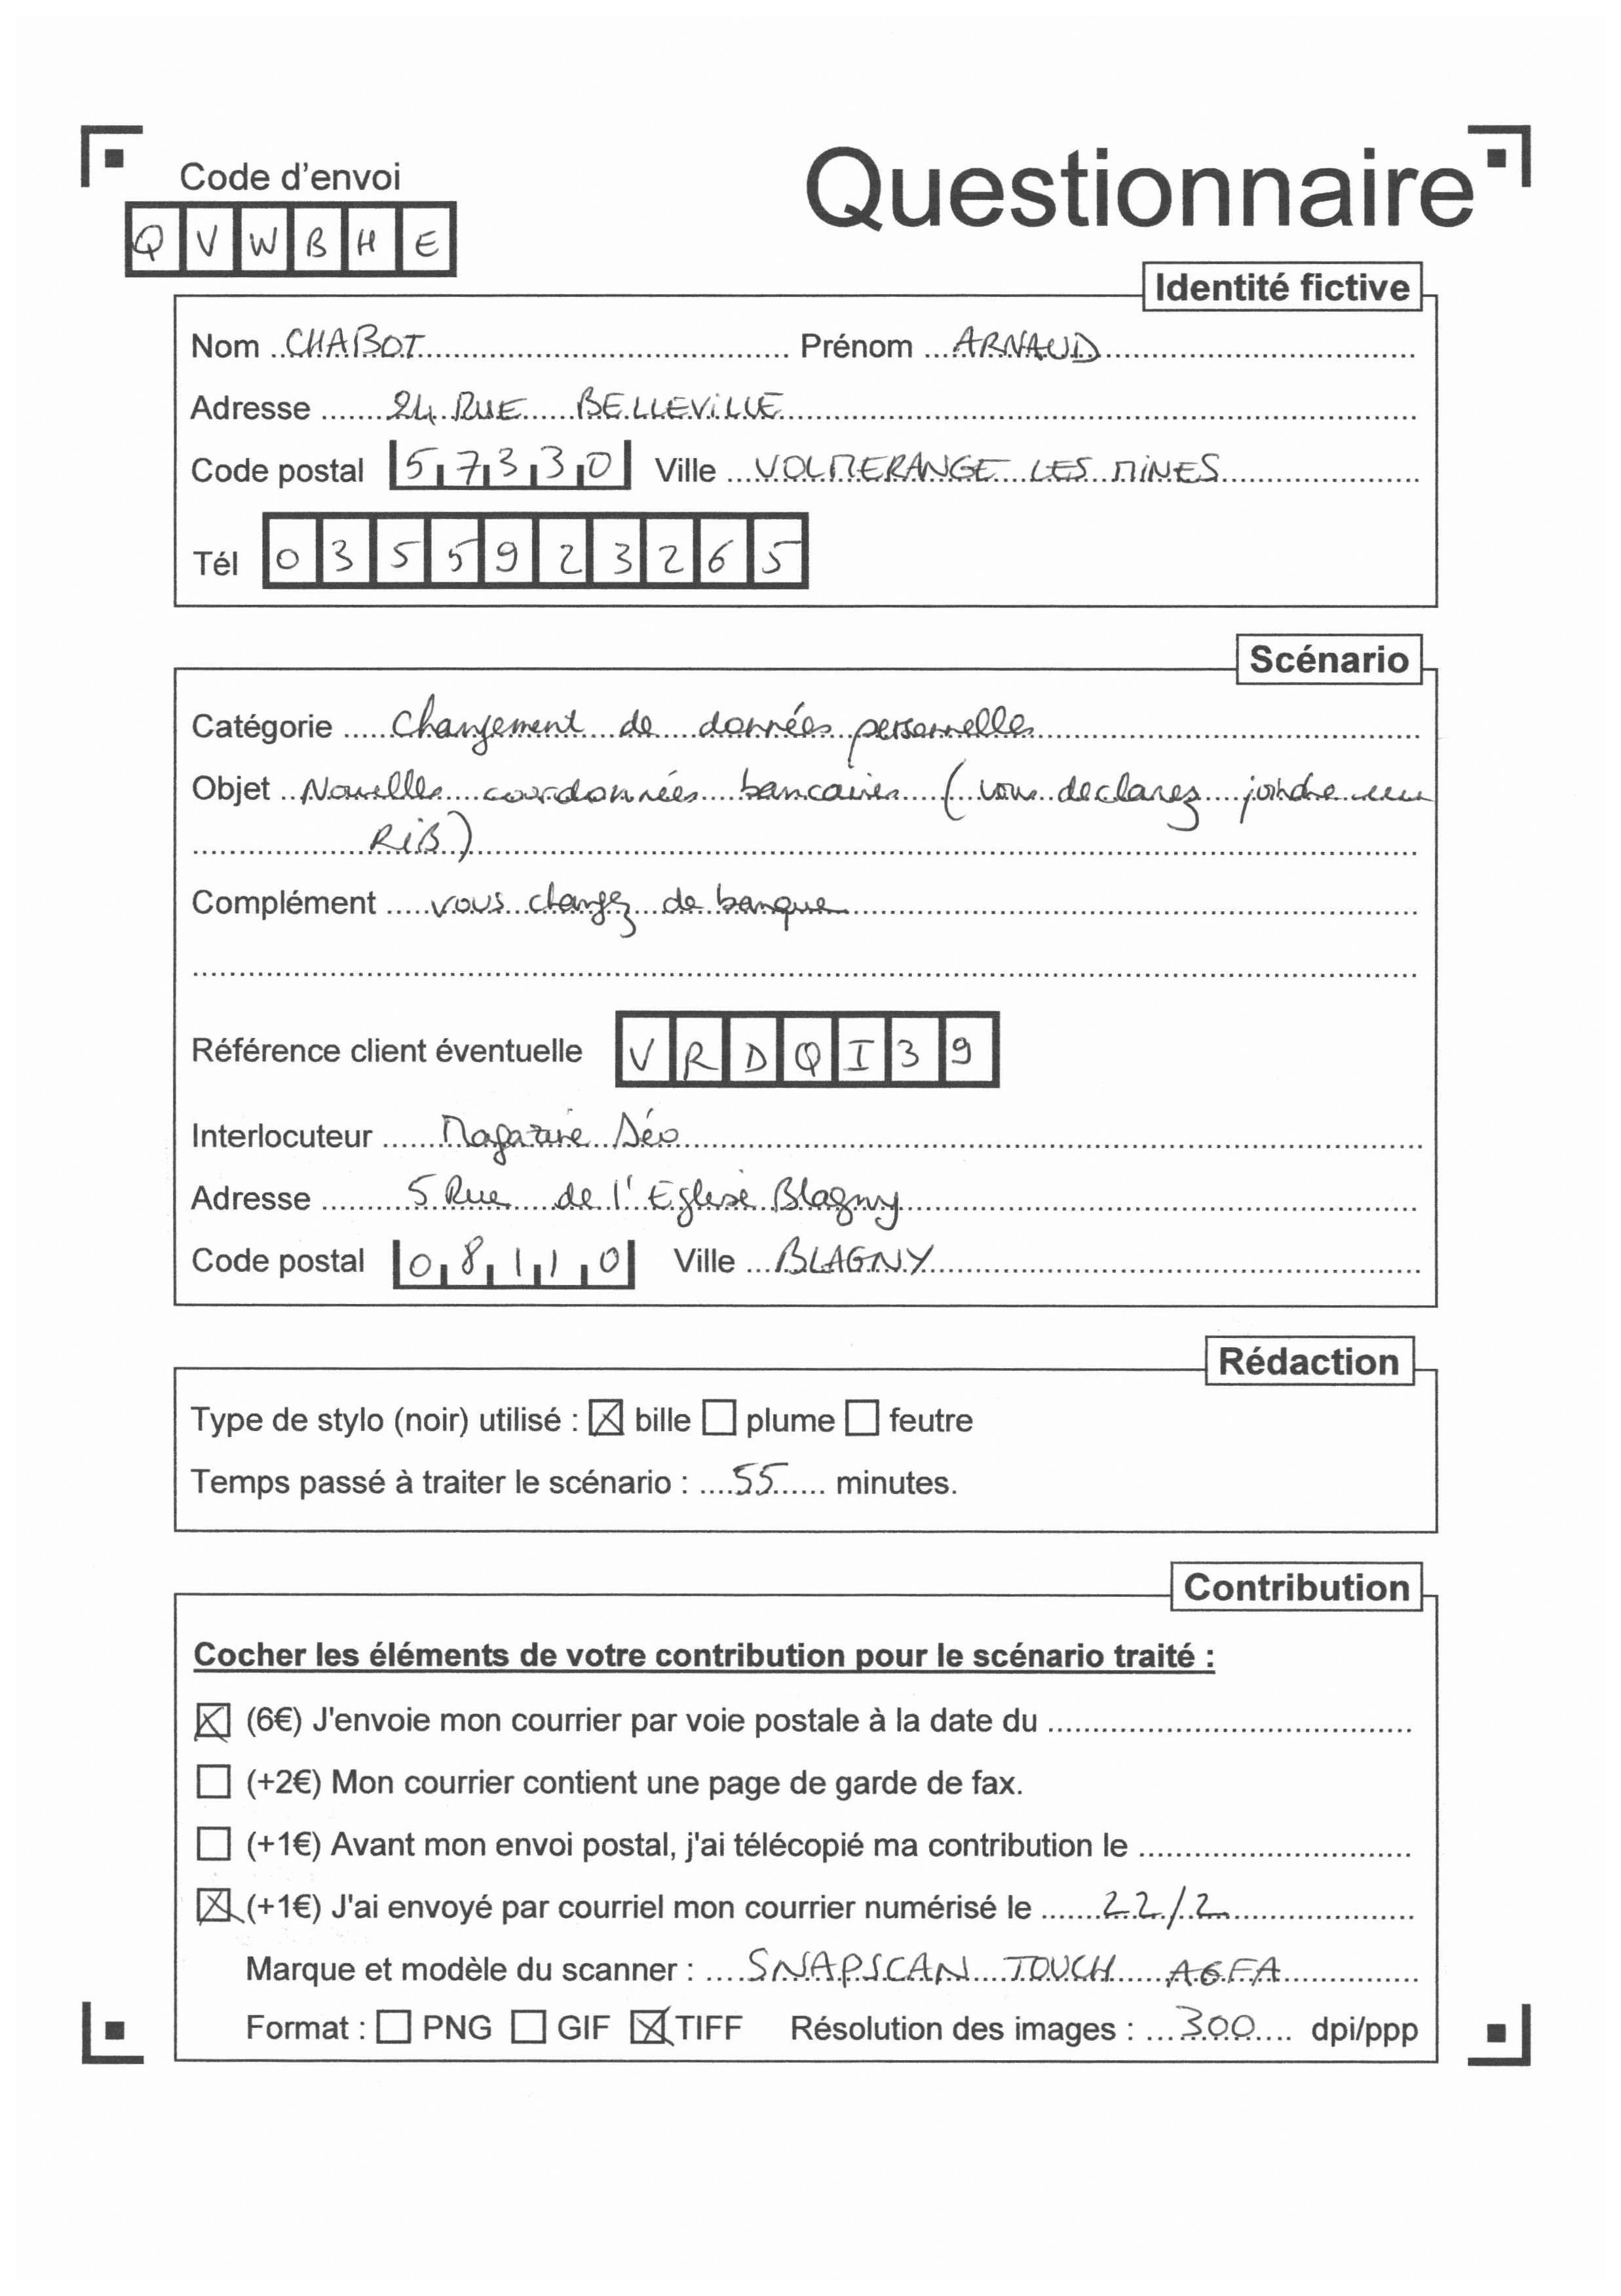 Code d'envoi
Questionnaire
QVWBHE
Identité fictive
Nom CHABOT Prénom ARNAUD
Adresse 24 RUE BELLEVILLE
Code postal 57330 Ville VOLMERANGE LES MINES
Tél 0355923265
Scénario
Catégorie Changement de données personnelles
Objet Nouvelles coordonnées bancaires (vous declarez joindre un
RIB)
Complément vous changez de banque
Référence client éventuelle VRDQI39
Interlocuteur Magazine Déo
Adresse 5 Rue de l'Eglise Blagny
Code postal 08110 Ville BLAGNY
Rédaction
Type de stylo (noir) utilisé : ☒ bille ☐ plume ☐ feutre
Temps passé à traiter le scénario : 55 minutes.
Contribution
Cocher les éléments de votre contribution pour le scénario traité :
☒ (6€) J'envoie mon courrier par voie postale à la date du
☐ (+2€) Mon courrier contient une page de garde de fax.
☐ (+1€) Avant mon envoi postal, j'ai télécopié ma contribution le
☒ (+1€) J'ai envoyé par courriel mon courrier numérisé le 22/2
Marque et modèle du scanner : SNAPSCAN TOUCH AGFA
Format : ☐ PNG ☐ GIF ☒ TIFF Résolution des images : 300 dpi/ppp